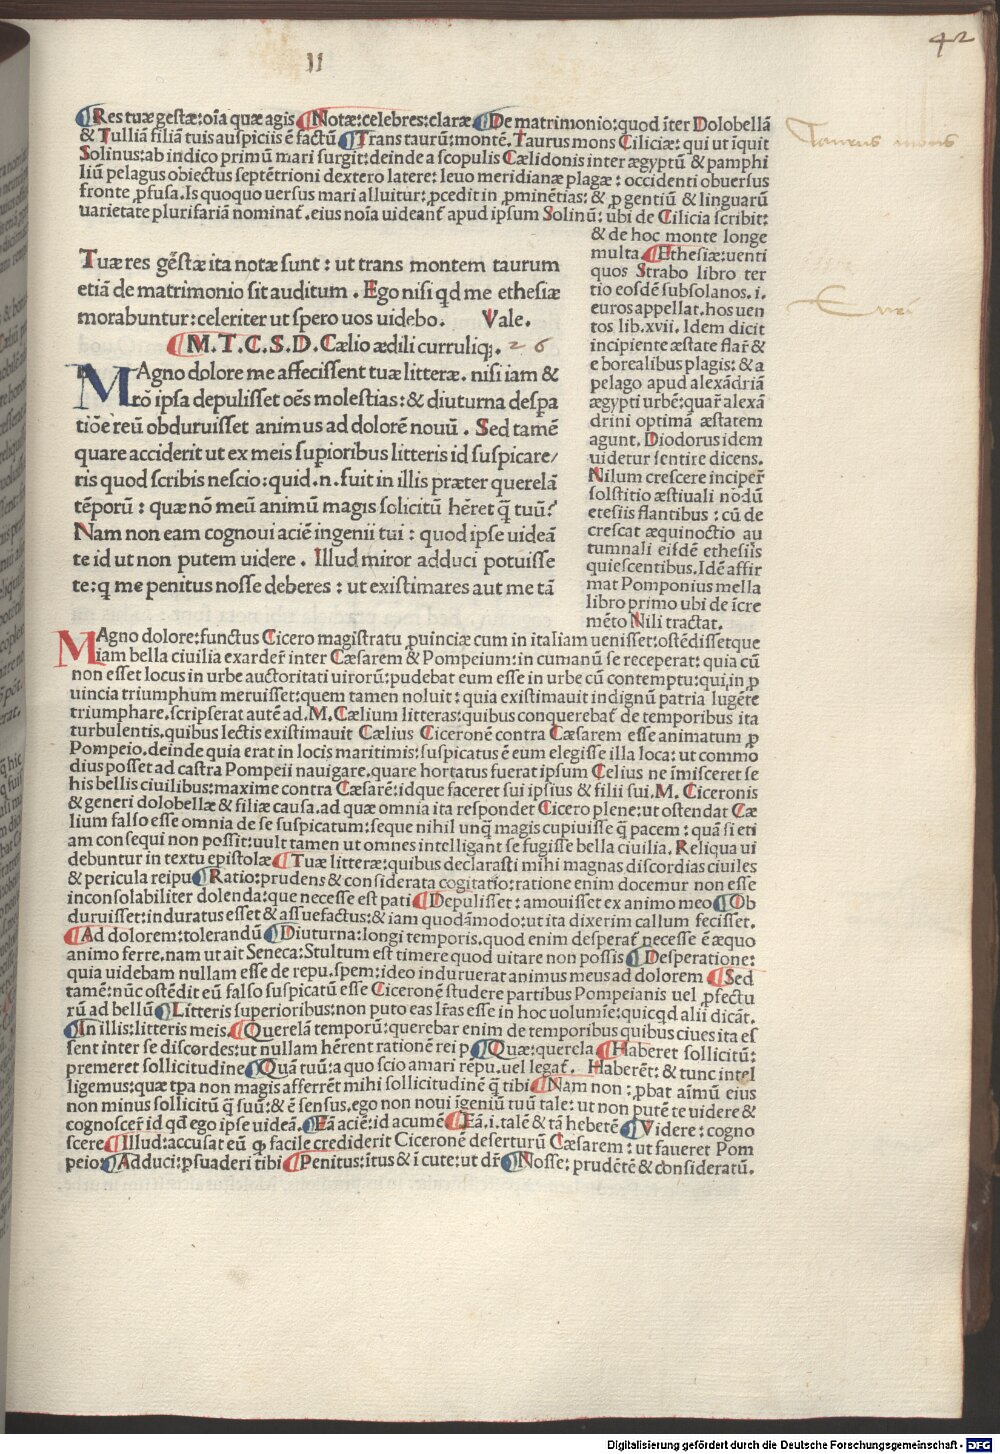 42
II
Res tuæ gestæ:oīa quæ agis Notæ:celebres:claræ De matrimonio:quod īter Dolobellā
& Tulliā filiā tuis auspiciis ē factū Trans taurū:montē. Taurus mons Ciliciæ: qui ut īquit
Solinus:ab indico primū mari surgit:deinde a scopulis Cælidonis inter ægyptū & pamphi
liū pelagus obiectus septētrioni dextero latere: leuo meridianæ plagæ: occidenti obuersus
fronte ꝓfusa. Is quoquo uersus mari alluitur: ꝓcedit in ꝓminētias: & ꝓ gentiū & linguarū
uarietate plurifariā nominat̄. eius noīa uideant̄ apud ipsum Solinū: ubi de Cilicia scribit:
Taurus mons
& de hoc monte longe
multa. Ethesiæ:uenti
quos Strabo libro ter
tio eosdē subsolanos. i.
euros appellat. hos uen
tos lib.xvii. Idem dicit
incipiente æstate flar̄ &
e borealibus plagis: & a
pelago apud alexādriā
ægypti urbē:quar̄ alexā
drini optimā æstatem
agunt. Diodorus idem
uidetur sentire dicens.
Nilum crescere inciper̄
solstitio æstiuali nōdū
etesiis flantibus: cū de
crescat æquinoctio au
tumnali eisdē ethesiis
quiescentibus. Idē affir
mat Pomponius mella
libro primo ubi de īcre
mēto Nili tractat.
Euri
Tuæ res gēstæ ita notæ sunt: ut trans montem taurum
etiā de matrimonio sit auditum. Ego nisi qd me ethesiæ
morabuntur:celeriter ut spero uos uidebo. Vale.
M.T.C.S.D.Cælio ædili curruliq;. 26
MAgno dolore me affecissent tuæ litteræ. nisi iam &
rō ipsa depulisset oēs molestias:& diuturna despa
tiōe reū obduruisset animus ad dolorē nouū. Sed tamē
quare acciderit ut ex meis supioribus litteris id suspicare/
ris quod scribis nescio:quid.n.fuit in illis præter querelā
tēporū: quæ nō meū animū magis solicitū hēret q̄ tuū?
Nam non eam cognoui aciē ingenii tui: quod ipse uideā
te id ut non putem uidere. Illud miror adduci potuisse
te:q me penitus nosse deberes: ut existimares aut me tā
MAgno dolore:functus Cicero magistratu ꝓuinciæ cum in italiam uenisset:ostēdissetque
iam bella ciuilia exarder̄ inter Cæsarem & Pompeium:in cumanū se receperat: quia cū
non esset locus in urbe auctoritati uirorū:pudebat eum esse in urbe cū contemptu:qui,in ꝓ
uincia triumphum meruisset:quem tamen noluit: quia existimauit indignū patria lugēte
triumphare.scripserat autē ad.M.Cælium litteras:quibus conquerebat̄ de temporibus ita
turbulentis.quibus lectis existimauit Cælius Ciceronē contra Cæsarem esse animatum ꝓ
Pompeio.deinde quia erat in locis maritimis:suspicatus ē eum elegisse illa loca: ut commo
dius posset ad castra Pompeii nauigare.quare hortatus fuerat ipsum Celius ne īmisceret se
his bellis ciuilibus:maxime contra Cæsarē:idque faceret sui ipsius & filii sui.M. Ciceronis
& generi dolobellæ & filiæ causa.ad quæ omnia ita respondet Cicero plene:ut ostendat Cæ
lium falso esse omnia de se suspicatum:seque nihil unq̄ magis cupiuisse q̄ pacem: quā si eti
am consequi non possit:uult tamen ut omnes intelligant se fugisse bella ciuilia. Reliqua ui
debuntur in textu epistolæ Tuæ litteræ:quibus declarasti mihi magnas discordias ciuiles
& pericula reipu Ratio:prudens & considerata cogitatio:ratione enim docemur non esse
inconsolabiliter dolenda:que necesse est pati Depulisset: amouisset ex animo meo Ob
duruisset:induratus esset & assuefactus:& iam quodāmodo:ut ita dixerim callum fecisset.
Ad dolorem:tolerandū Diuturna:longi temporis.quod enim desperat̄ necesse ē æquo
animo ferre.nam ut ait Seneca:Stultum est timere quod uitare non possis Desperatione:
quia uidebam nullam esse de repu.spem:ideo induruerat animus meus ad dolorem Sed
tamē:nūc ostēdit eū falso suspicatū esse Ciceronē studere partibus Pompeianis uel ꝓfectu
rū ad bellū Litteris superioribus:non puto eas lr̄as esse in hoc uolumīe:quicqd alii dicāt.
In illis:litteris meis. Querelā temporū:querebar enim de temporibus quibus ciues ita es
sent inter se discordes:ut nullam hērent rationē rei p Quæ:querela Haberet sollicitū:
premeret sollicitudine Quā tuū:a quo scio amari rēpu.uel legat̄. Haberēt: & tunc intel
ligemus:quæ tpa non magis afferrēt mihi sollicitudinē q̄ tibi Nam non: ꝓbat aīmū eius
non minus sollicitū q̄ suū:& ē sensus.ego non noui īgeniū tuū tale: ut non putē te uidere &
cognoscer̄ id qd ego ipse uideā. Eā aciē:id acumē Eā.i.talē & tā hebetē Videre: cogno
scere Illud:accusat eū ꝙ facile crediderit Ciceronē deserturū Cæsarem: ut faueret Pom
peio: Adduci:ꝑsuaderi tibi Penitus:ītus & ī cute:ut dr̄ Nosse: prudētē & consideratū.
Digitalisierung gefördert durch die Deutsche Forschungsgemeinschaft - DFG